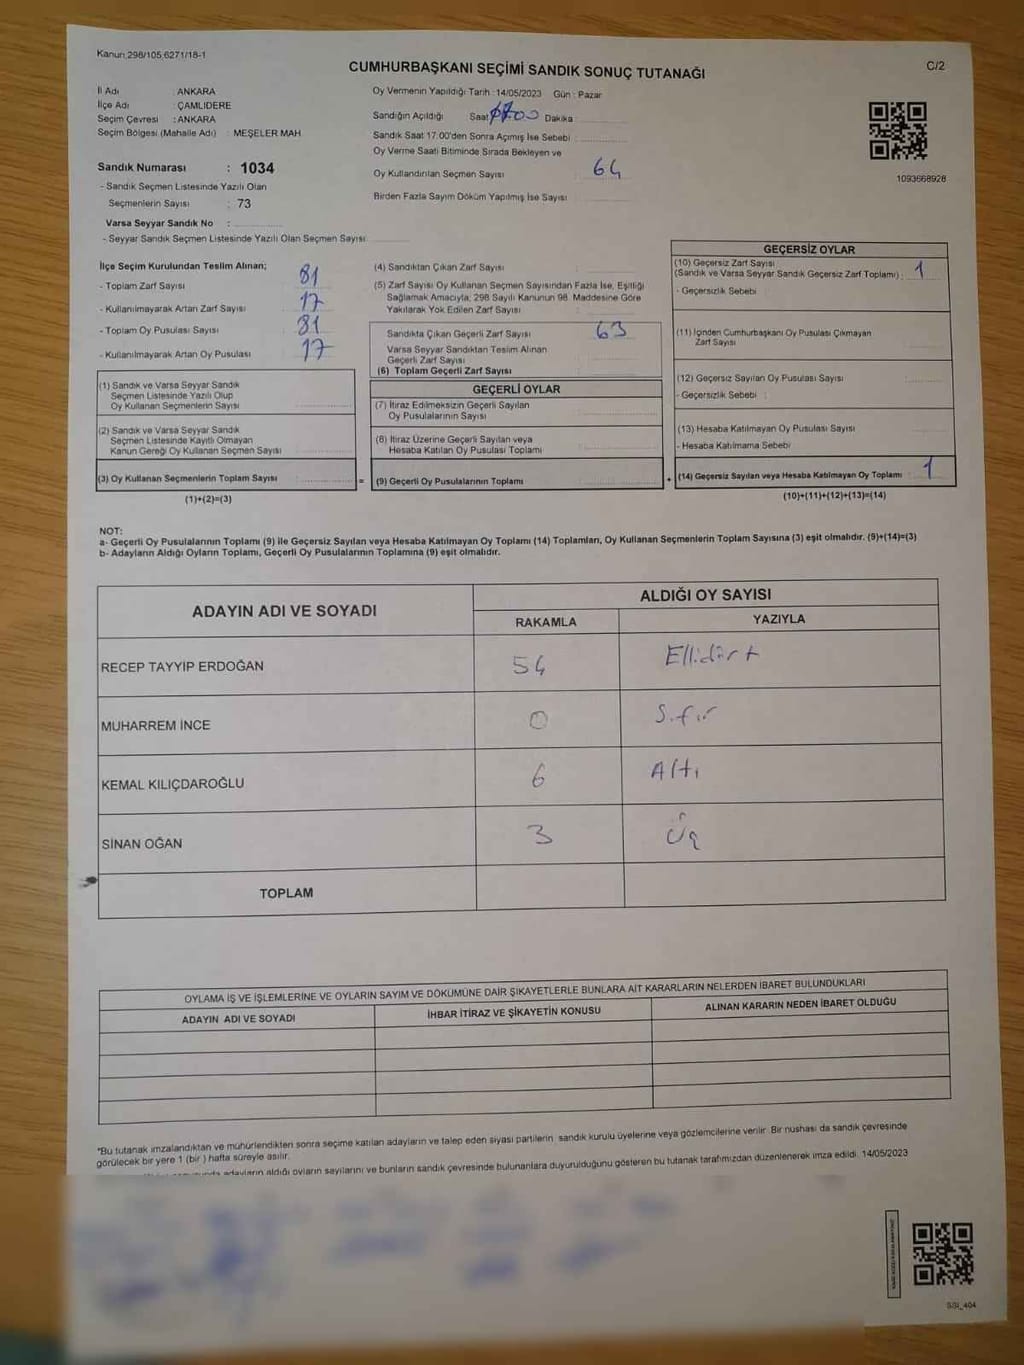 Kanun;298/105;6271/18-1
C/2
CUMHURBAŞKANI SEÇİMİ SANDIK SONUÇ TUTANAĞI
İl Adı : ANKARA
İlçe Adı : ÇAMLIDERE
Seçim Çevresi : ANKARA
Seçim Bölgesi (Mahalle Adı) : MEŞELER MAH
Sandık Numarası : 1034
- Sandık Seçmen Listesinde Yazılı Olan
Seçmenlerin Sayısı : 73
Varsa Seyyar Sandık No :
- Seyyar Sandık Seçmen Listesinde Yazılı Olan Seçmen Sayısı
Oy Vermenin Yapıldığı Tarih :14/05/2023 Gün : Pazar
Sandığın Açıldığı Saat 17.00 Dakika :
Sandık Saat 17.00'den Sonra Açımış İse Sebebi :
Oy Verme Saati Bitiminde Sırada Bekleyen ve
Oy Kullandırılan Seçmen Sayısı : 64
Birden Fazla Sayım Döküm Yapılmış İse Sayısı :
1093668928
İlçe Seçim Kurulundan Teslim Alınan;
- Toplam Zarf Sayısı : 81
- Kullanılmayarak Artan Zarf Sayısı : 17
- Toplam Oy Pusulası Sayısı : 81
- Kullanılmayarak Artan Oy Pusulası : 17
(1) Sandık ve Varsa Seyyar Sandık
Seçmen Listesinde Yazılı Olup
Oy Kullanan Seçmenlerin Sayısı
(2) Sandık ve Varsa Seyyar Sandık
Seçmen Listesinde Kayıtlı Olmayan
Kanun Gereği Oy Kullanan Seçmen Sayısı
(3) Oy Kullanan Seçmenlerin Toplam Sayısı =
(1)+(2)=(3)
(4) Sandıktan Çıkan Zarf Sayısı :
(5) Zarf Sayısı Oy Kullanan Seçmen Sayısından Fazla İse, Eşitliği
Sağlamak Amacıyla; 298 Sayılı Kanunun 98. Maddesine Göre
Yakılarak Yok Edilen Zarf Sayısı :
Sandıkta Çıkan Geçerli Zarf Sayısı : 63
Varsa Seyyar Sandıktan Teslim Alınan
Geçerli Zarf Sayısı
(6) Toplam Geçerli Zarf Sayısı
GEÇERLİ OYLAR
(7) İtiraz Edilmeksizin Geçerli Sayılan
Oy Pusulalarının Sayısı
(8) İtiraz Üzerine Geçerli Sayılan veya
Hesaba Katılan Oy Pusulası Toplamı
(9) Geçerli Oy Pusulalarının Toplamı +
GEÇERSİZ OYLAR
(10) Geçersiz Zarf Sayısı
(Sandık ve Varsa Seyyar Sandık Geçersiz Zarf Toplamı) : 1
- Geçersizlik Sebebi :
(11) İçinden Cumhurbaşkanı Oy Pusulası Çıkmayan
Zarf Sayısı
(12) Geçersiz Sayılan Oy Pusulası Sayısı :
- Geçersizlik Sebebi :
(13) Hesaba Katılmayan Oy Pusulası Sayısı :
- Hesaba Katılmama Sebebi
(14) Geçersiz Sayılan veya Hesaba Katılmayan Oy Toplamı : 1
(10)+(11)+(12)+(13)=(14)
NOT:
a- Geçerli Oy Pusulalarının Toplamı (9) ile Geçersiz Sayılan veya Hesaba Katılmayan Oy Toplamı (14) Toplamları, Oy Kullanan Seçmenlerin Toplam Sayısına (3) eşit olmalıdır. (9)+(14)=(3)
b- Adayların Aldığı Oyların Toplamı, Geçerli Oy Pusulalarının Toplamına (9) eşit olmalıdır.
ADAYIN ADI VE SOYADI
ALDIĞI OY SAYISI
RAKAMLA YAZIYLA
RECEP TAYYİP ERDOĞAN 54 Ellidört
MUHARREM İNCE 0 Sıfır
KEMAL KILIÇDAROĞLU 6 Altı
SİNAN OĞAN 3 Üç
TOPLAM
OYLAMA İŞ VE İŞLEMLERİNE VE OYLARIN SAYIM VE DÖKÜMÜNE DAİR ŞİKAYETLERLE BUNLARA AİT KARARLARIN NELERDEN İBARET BULUNDUKLARI
ADAYIN ADI VE SOYADI İHBAR İTİRAZ VE ŞİKAYETİN KONUSU ALINAN KARARIN NEDEN İBARET OLDUĞU
*Bu tutanak imzalandıktan ve mühürlendikten sonra seçime katılan adayların ve talep eden siyasi partilerin, sandık kurulu üyelerine veya gözlemcilerine verilir. Bir nüshası da sandık çevresinde
görülecek bir yere 1 (bir ) hafta süreyle asılır.
adayların aldığı oyların sayılarını ve bunların sandık çevresinde bulunanlara duyurulduğunu gösteren bu tutanak tarafımızdan düzenlenerek imza edildi. 14/05/2023
SSI_404